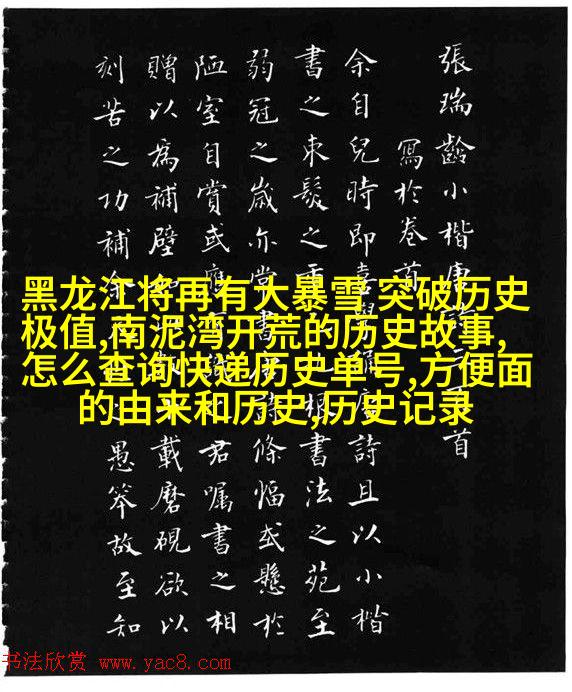 張瑞齡小楷唐首
寫於卷首
余自兒時即喜學誦唐詩且以小楷
書之束髮之書法之苑至
弱冠之歲亦常書條幅或懸於
陋室自賞或應君囑書之相
贈以為補壁載磨硯欲以
刻苦之功補余愚笨故至知
黑龙江将再有大暴雪 突破历史
极值,南泥湾开荒的历史故事,
怎么查询快递历史单号,方便面
的由来和历史,历史记录
书法欣赏 www.yac8.com